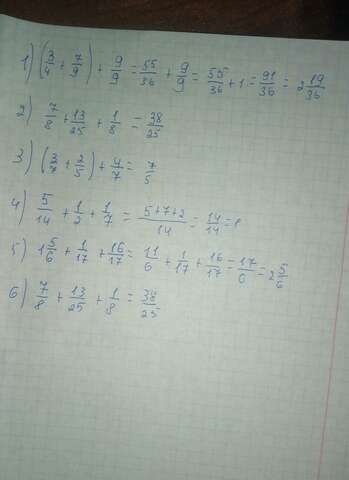 1) (3/4 + 7/9) + 9/9 = 55/36 + 9/9 = 55/36 + 1 = 91/36 = 2 19/36
2) 7/8 + 13/25 + 1/8 = 38/25
3) (3/7 + 2/5) + 4/7 = 7/5
4) 5/14 + 1/2 + 1/7 = 5+7+2/14 = 14/14 = 1
5) 1 5/6 + 1/17 + 16/17 = 11/6 + 1/17 + 16/17 = 17/6 = 2 5/6
6) 7/8 + 13/25 + 1/8 = 38/25